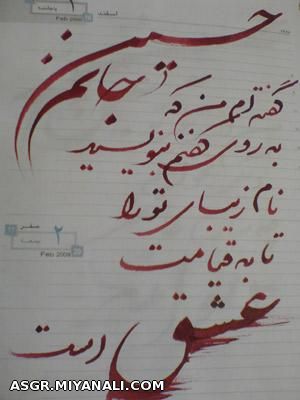 اسفند
پنجشنبه
Feb 2009
حسین
جانم
گفته ام من که
به روی کفنم بنویسید
نام زیبای تو را
صفر
۲
Feb 2009
تا به قیامت
عشق
است
ASGR.MIYANALI.COM